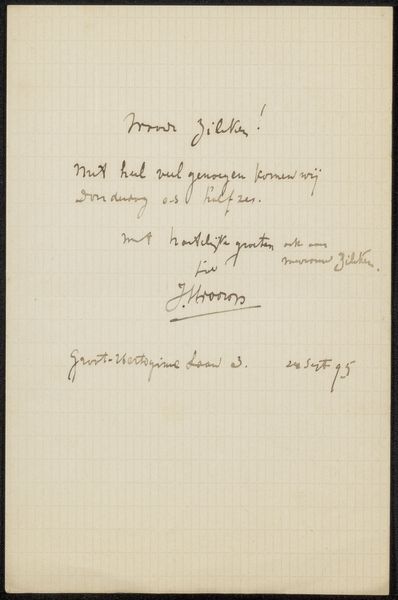 Waarde Zilcken!
Met heel veel genoegen komen wij
Donderdag a.s. half zes.
Met hartelijke groeten ook aan
mevrouw Zilcken.
tt
JThToorop
Groot-Hertoginne Laan 3. 24 Sept 95